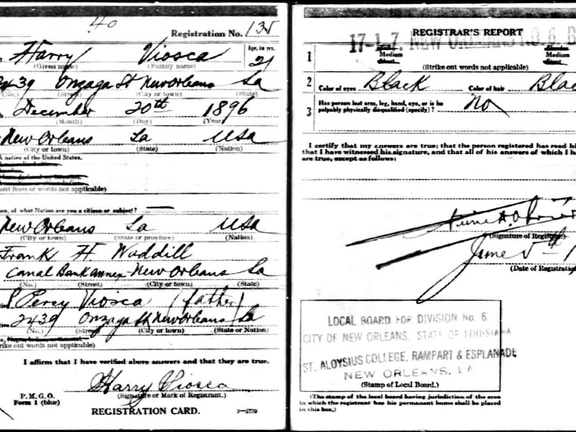 40
Registration No. 135
Harry Viosca
Age, in yrs.
21
(Given name) (Family name)
2439 Onzaga St New Orleans La
(No.) (Street) (City or town) (State)
December 20th 1896
(Month) (Day) (Year)
New Orleans La USA
(City or town) (State) (Nation)
A native of the United States.
out lines or words not applicable)
en, of what Nation are you a citizen or subject?
New Orleans La USA
(City or town) (State or province) (Nation)
Frank H. Waddill
Canal Bank annex New Orleans La
(No.) (Street) (City or town) (State)
Percy Viosca (father)
2439 Onzaga St New Orleans La
(No.) (Street) (City or town) (State or Nation)
rike out words not applicable)
I affirm that I have verified above answers and that they are true.
Harry Viosca
(Signature or Mark of Registrant.)
P.M.G.O.
Form 1 (blue)
REGISTRATION CARD.
REGISTRAR'S REPORT
17-1-7. NEW ORLEANS NO. 6
1
Medium
Medium
(Strike out words not applicable)
2 Color of eyes Black Color of hair Blac
3 Has person lost arm, leg, hand, eye, or is he
palpably physically disqualified (specify)? No
I certify that my answers are true; that the person registered has read his
that I have witnessed his signature, and that all of his answers of which I h
are true, except as follows:
(Signature of Registrar)
June 5th 1
(Date of Registration)
LOCAL BOARD FOR DIVISION No. 6.
CITY OF NEW ORLEANS, STATE OF LOUISIANA
ST. ALOYSIUS COLLEGE, RAMPART & ESPLANADE
NEW ORLEANS, LA
(Stamp of Local Board.)
(The stamp of the local board having jurisdiction of the area
in which the registrant has his permanent home shall be placed
in this box.)